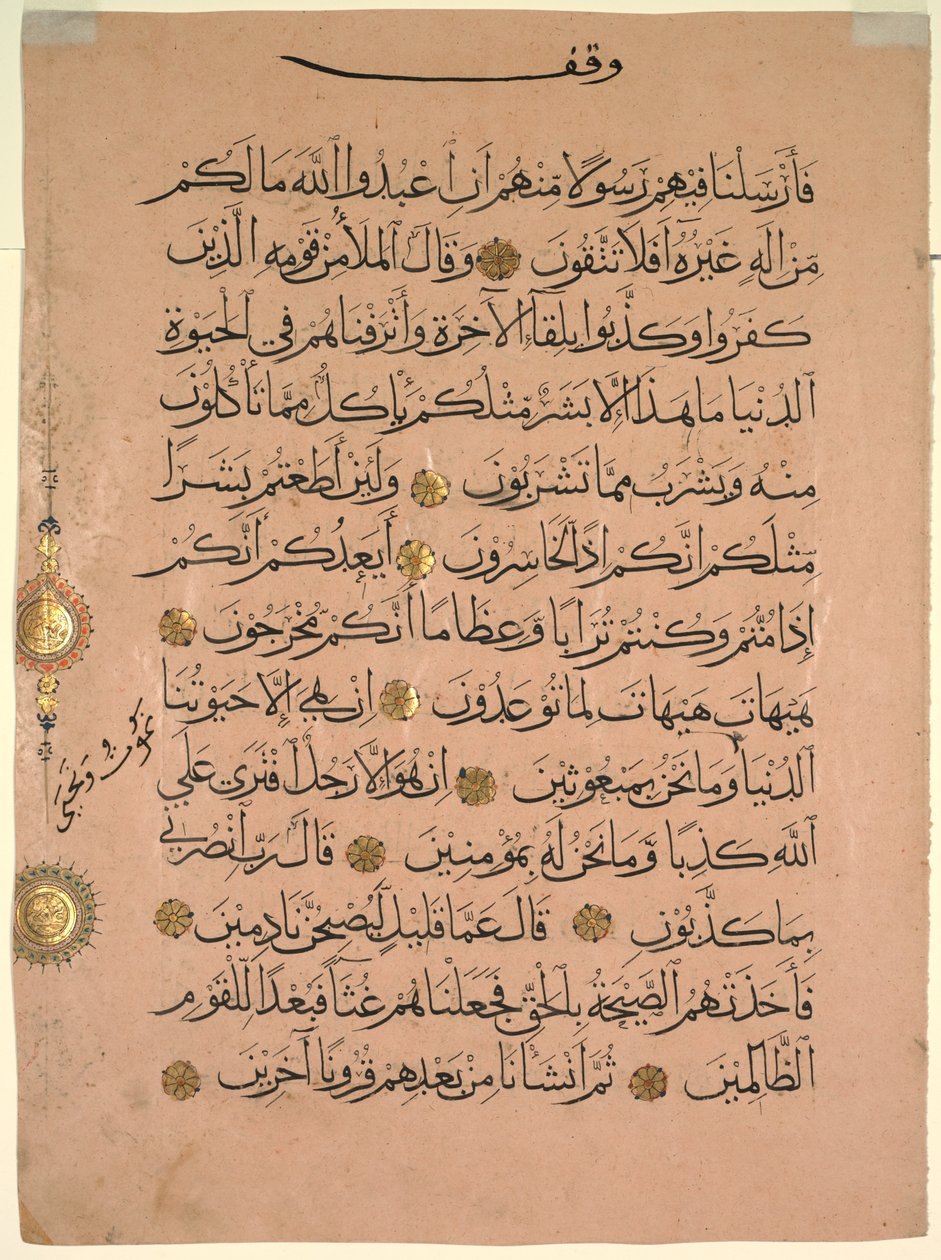 وقف
فَأَرْسَلْنَا فِيْهِمْ رَسُولًا مِّنْهُمْ اَنِ ٱعْبُدُوا اللَّهَ مَا لَكُمْ
مِّنْ اِلَهٍ غَيْرُهُ اَفَلَا تَتَّقُونَ وَقَالَ ٱلْمَلَأُ مِنْ قَوْمِهِ الَّذِيْنَ
كَفَرُوا وَكَذَّبُوا بِلِقَآءِ الْآخِرَةِ وَأَتْرَفْنَاهُمْ فِي ٱلْحَيٰوةِ
ٱلدُنْيَا مَا هَذَا اِلَّا بَشَرٌ مِّثْلُكُمْ يَأْكُلُ مِمَّا تَأْكُلُوْنَ
مِنْهُ وَيَشْرَبُ مِمَّا تَشْرَبُوْنَ وَلَئِنْ أَطَعْتُمْ بَشَرًا
مِّثْلَكُمْ اِنَّكُمْ اِذًا لَّخَاسِرُوْنَ أَيَعِدُكُمْ أَنَّكُمْ
إِذَا مُتُّمْ وَكُنْتُمْ تُرَابًا وَّعِظَامًا أَنَّكُمْ مُّخْرَجُوْنَ
هَيْهَاتَ هَيْهَاتَ لِمَا تُوْعَدُوْنَ اِنْ هِيَ إِلَّا حَيٰوتُنَا
ٱلدُنْيَا وَمَا نَحْنُ بِمَبْعُوْثِيْنَ اِنْ هُوَ اِلَّا رَجُلٌ ٱفْتَرَى عَلَي
ٱللَّهِ كَذِبًا وَّمَا نَحْنُ لَهُ بِمُؤْمِنِيْنَ قَالَ رَبِّ ٱنْصُرْنِي
بِمَا كَذَّبُوْنِ قَالَ عَمَّا قَلِيْلٍ لَّيُصْبِحُنَّ نَادِمِيْنَ
فَأَخَذَتْهُمُ ٱلصَّيْحَةُ بِٱلْحَقِّ فَجَعَلْنَاهُمْ غُثَآءً فَبُعْدًا لِّلْقَوْمِ
ٱلظَّالِمِيْنَ ثُمَّ اَنْشَأْنَا مِنْ بَعْدِهِمْ قُرُونًا آخَرِيْنَ
نموت ونحيى